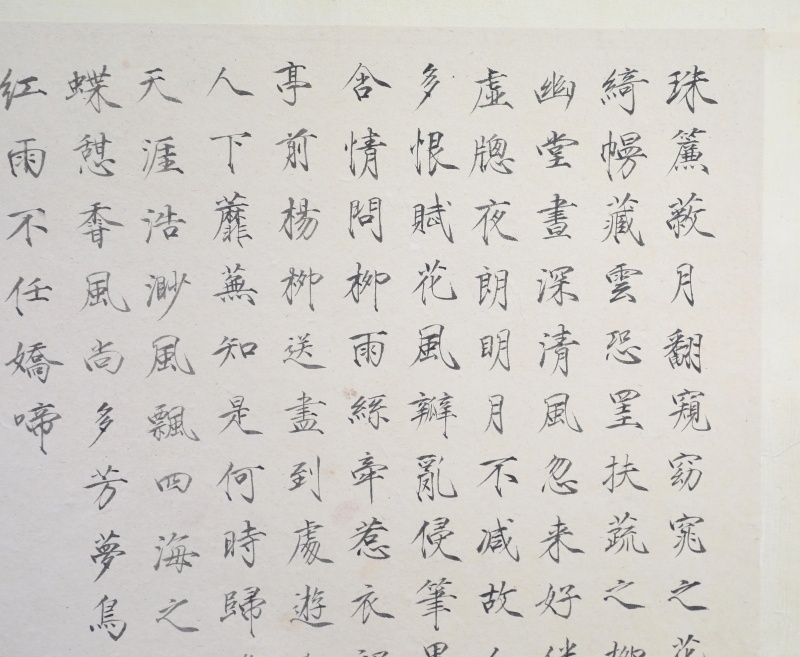 珠簾蔽月翻窺窈窕之花
綺幔藏雲恐罣扶蔬之柳
幽堂晝深清風忽来好伴
虛牕夜朗明月不减故人
多恨賦花風瓣亂侵筆墨
含情問柳雨絲牽惹衣裾
亭前楊柳送盡到處遊
人下蘼蕪知是何時歸
天涯浩渺風飄四海之
蝶憇香風尚多芳夢鳥
紅雨不任嬌啼